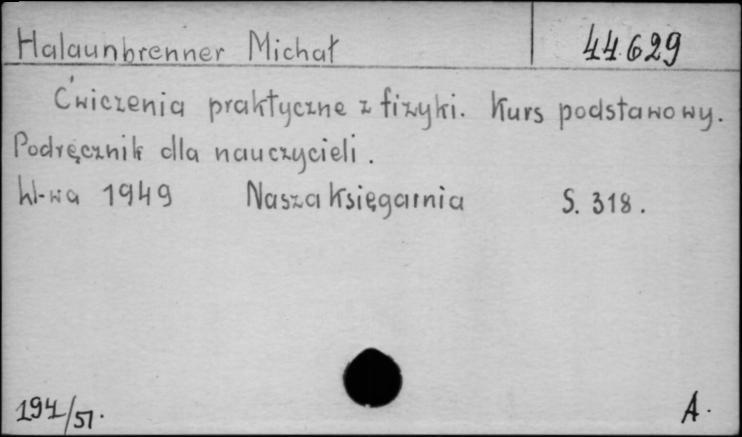 Halaunbrenner Michał 44.629
Ćwiczenia praktyczne z fizyki. Kurs podstawowy.
Podręcznik dla nauczycieli.
W-wa 1949 Nasza Księgarnia S. 318.
194/51. A.